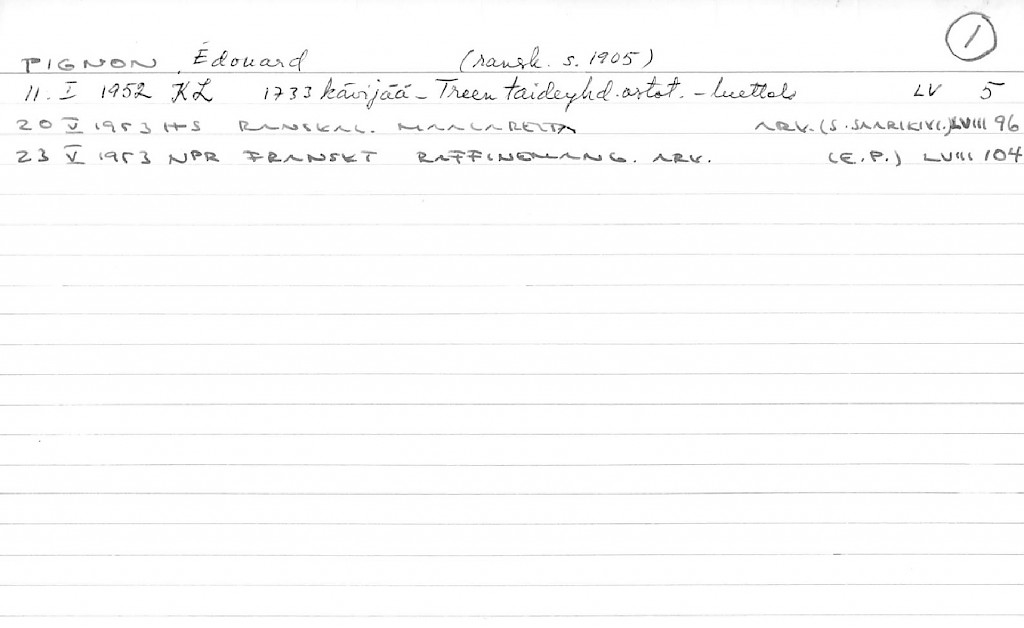 1
PIGNON, Édouard (ransk. s. 1905)
11. I 1952 KL 1733 kävijää – Treen taideyhd. ostot. – luettelo LV 5
20 V 1953 HS RANSKAL. MAALAREITA ARV. (S. SAARIKIVI.) LVIII 96
23 V 1953 NPR FRANSKT RAFFINEMANG. ARV. (E.P.) LVIII 104